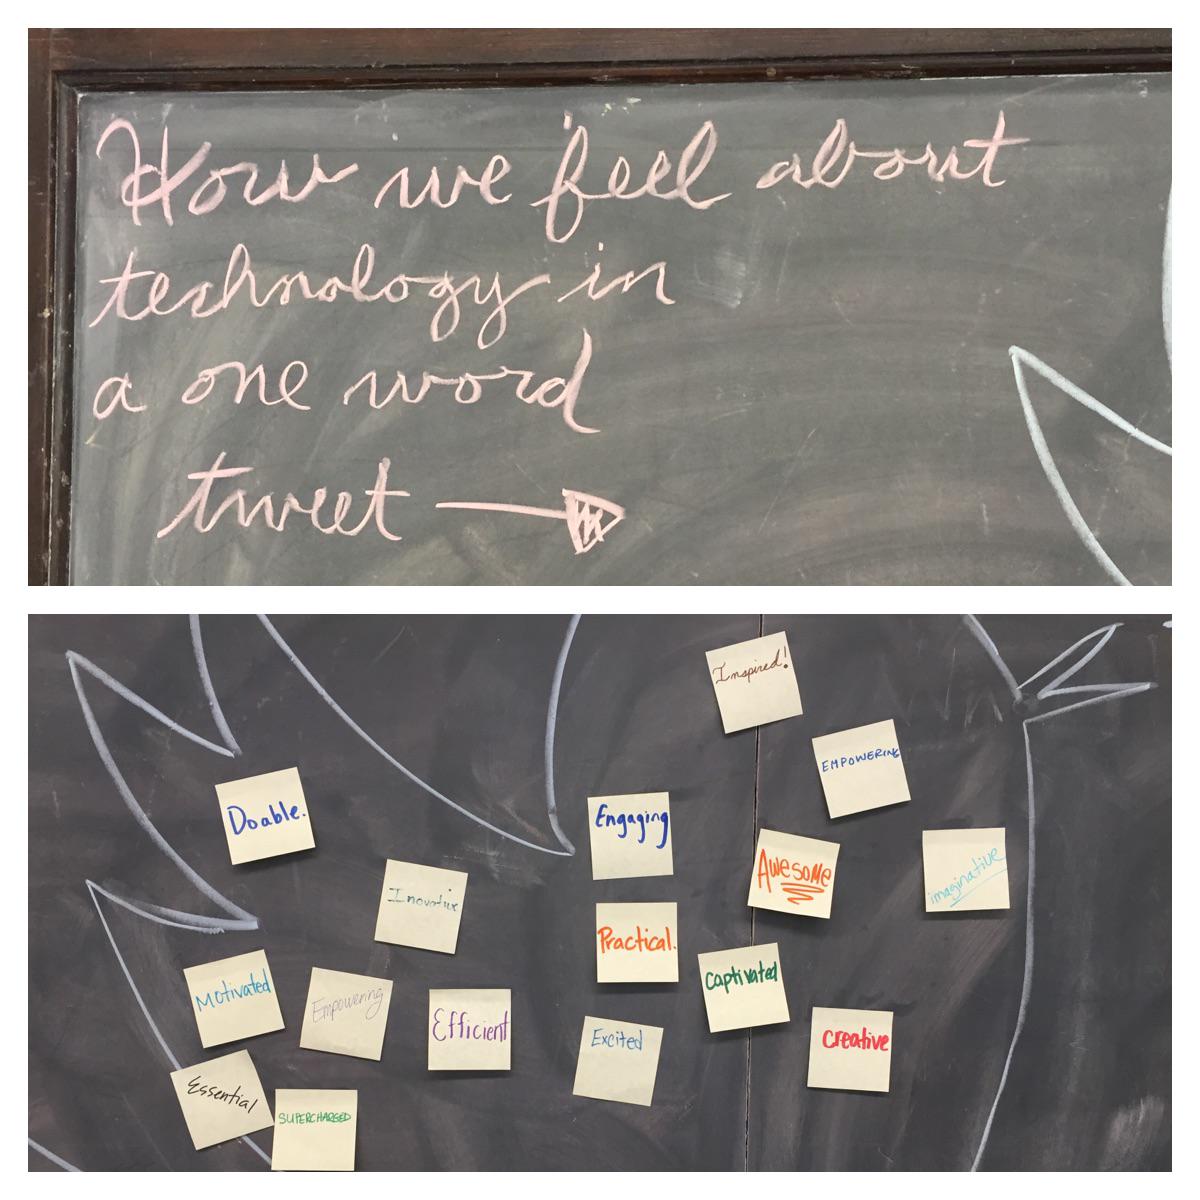 How we feel about
technology in
a one word
tweet
Inspired!
EMPOWERING
Doable.
Engaging
Awesome
imaginative
Inovative
Practical.
Captivated
Motivated
Empowering
Efficient
Excited
Creative
Essential
SUPERCHARGED